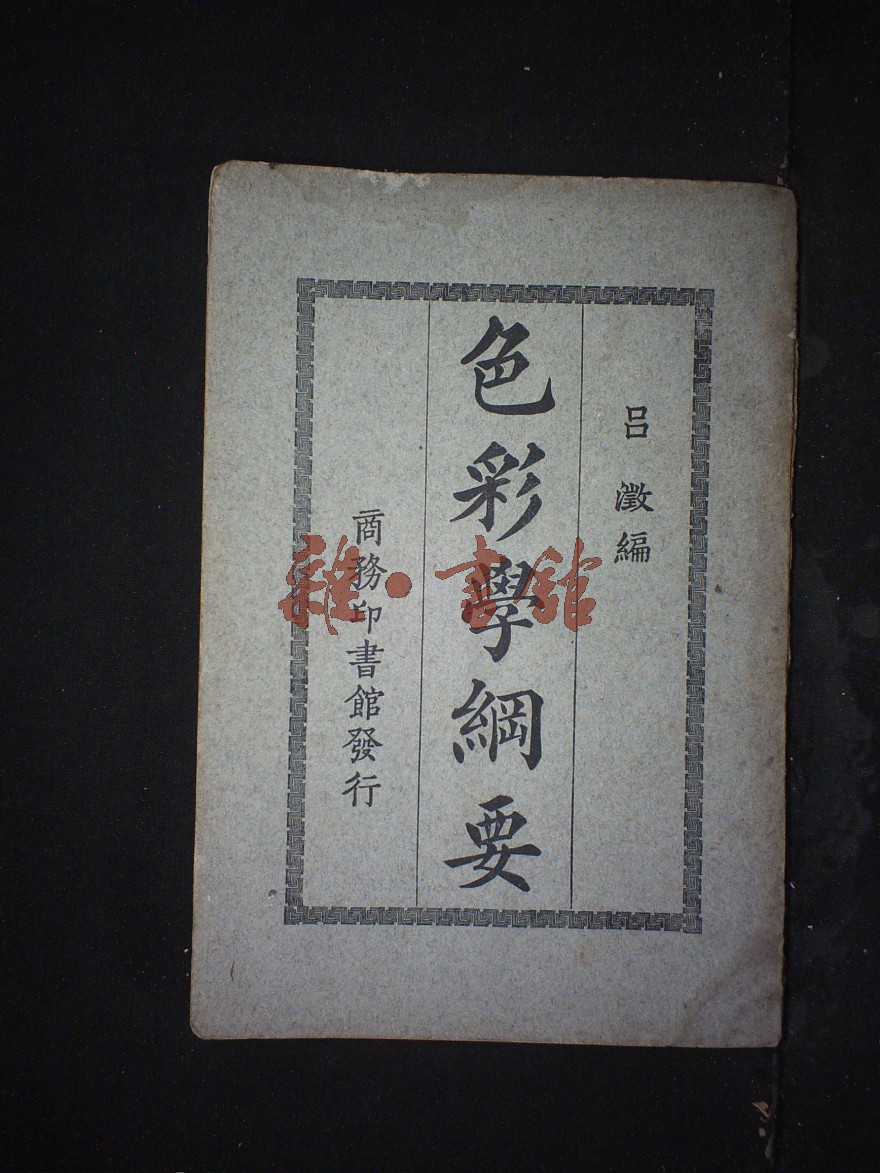 呂澂編
色彩學綱要
商務印書館發行
雜·書館